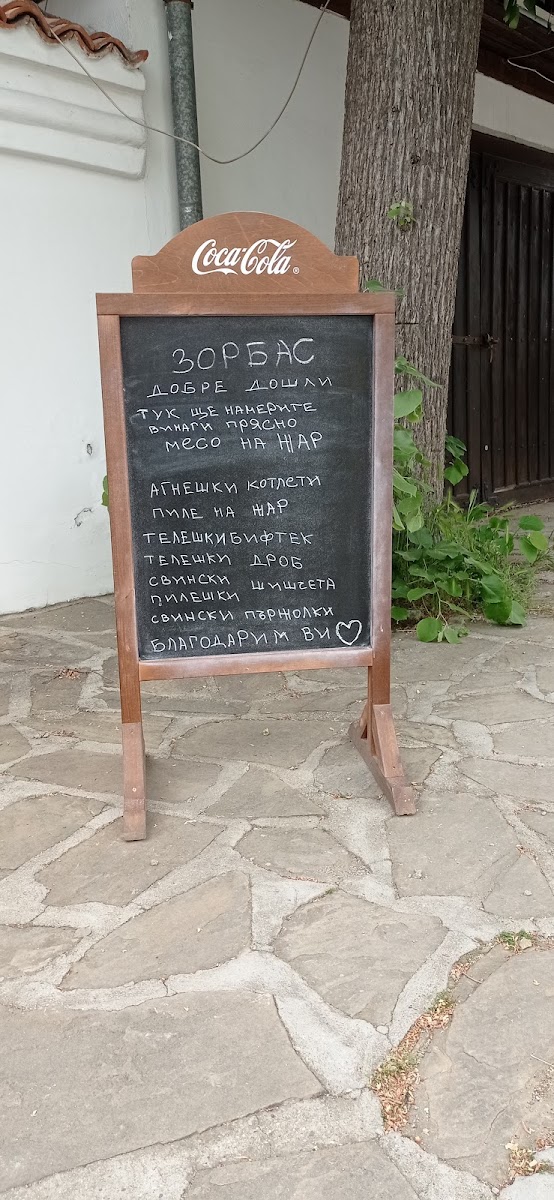 Coca-Cola®
ЗОРБАС
ДОБРЕ ДОШЛИ
ТУК ЩЕ НАМЕРИТЕ
ВИНАГИ ПРЯСНО
МЕСО НА ЖАР
АГНЕШКИ КОТЛЕТИ
ПИЛЕ НА ЖАР
ТЕЛЕШКИ БИФТЕК
ТЕЛЕШКИ ДРОБ
СВИНСКИ ШИШЧЕТА
ПИЛЕШКИ
СВИНСКИ ПЪРЖОЛКИ
БЛАГОДАРИМ ВИ ♡